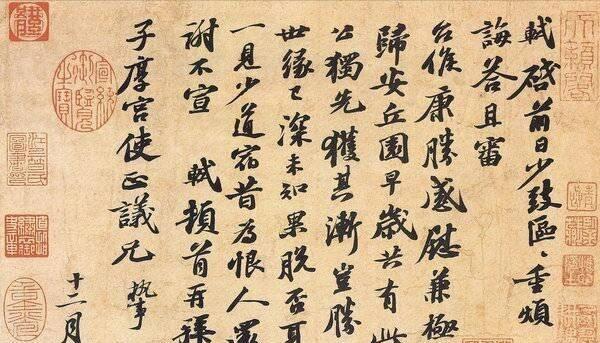 軾啓前日少致區〻重煩
誨答且審
台候康勝感慰兼極
歸安丘園早歲共有此
公獨先獲其漸豈勝
世緣已深未知果脫否耳
一見少道宿昔為恨人還
謝不宣 軾頓首再拜
子厚宮使正議兄 執事
十二月
宣統御覽之寶